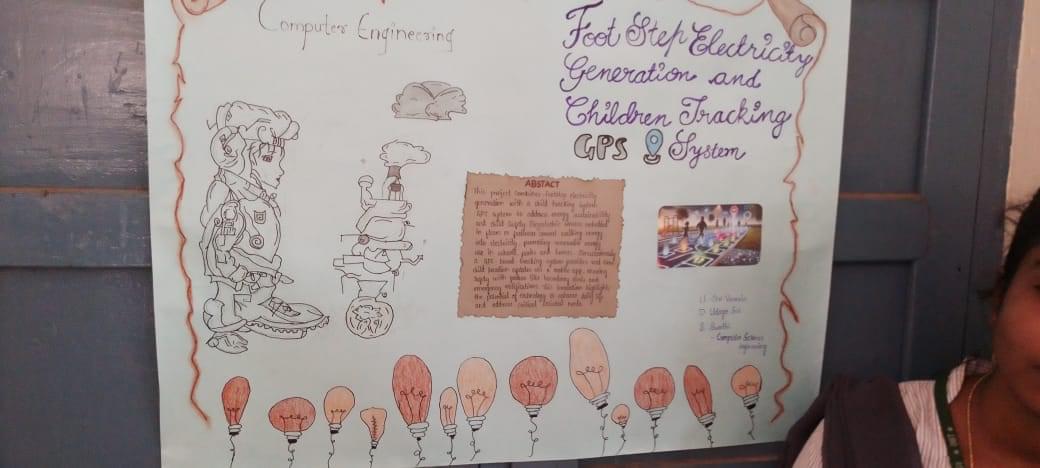 Computer Engineering
Foot Step Electricity
Generation and
Children Tracking
GPS System
ABSTACT
This project combines footstep electricity
generation with a child tracking system
GPS system to address energy sustainability
and child safety Piezoelectric sensors embedded
in floors or pathways convert walking energy
into electricity, promoting renewable energy
use in schools, parks and homes. Simultaneously
a GPS based tracking system provides real time
child location updates via a mobile app, ensuring
safety with features like boundary alerts and
emergency notifications. This innovation highlights
the potential of technology to enhance daily life
and address critical societal needs.
U. Sri
D. Udaya Sri
S.
- Computer Science
engineering